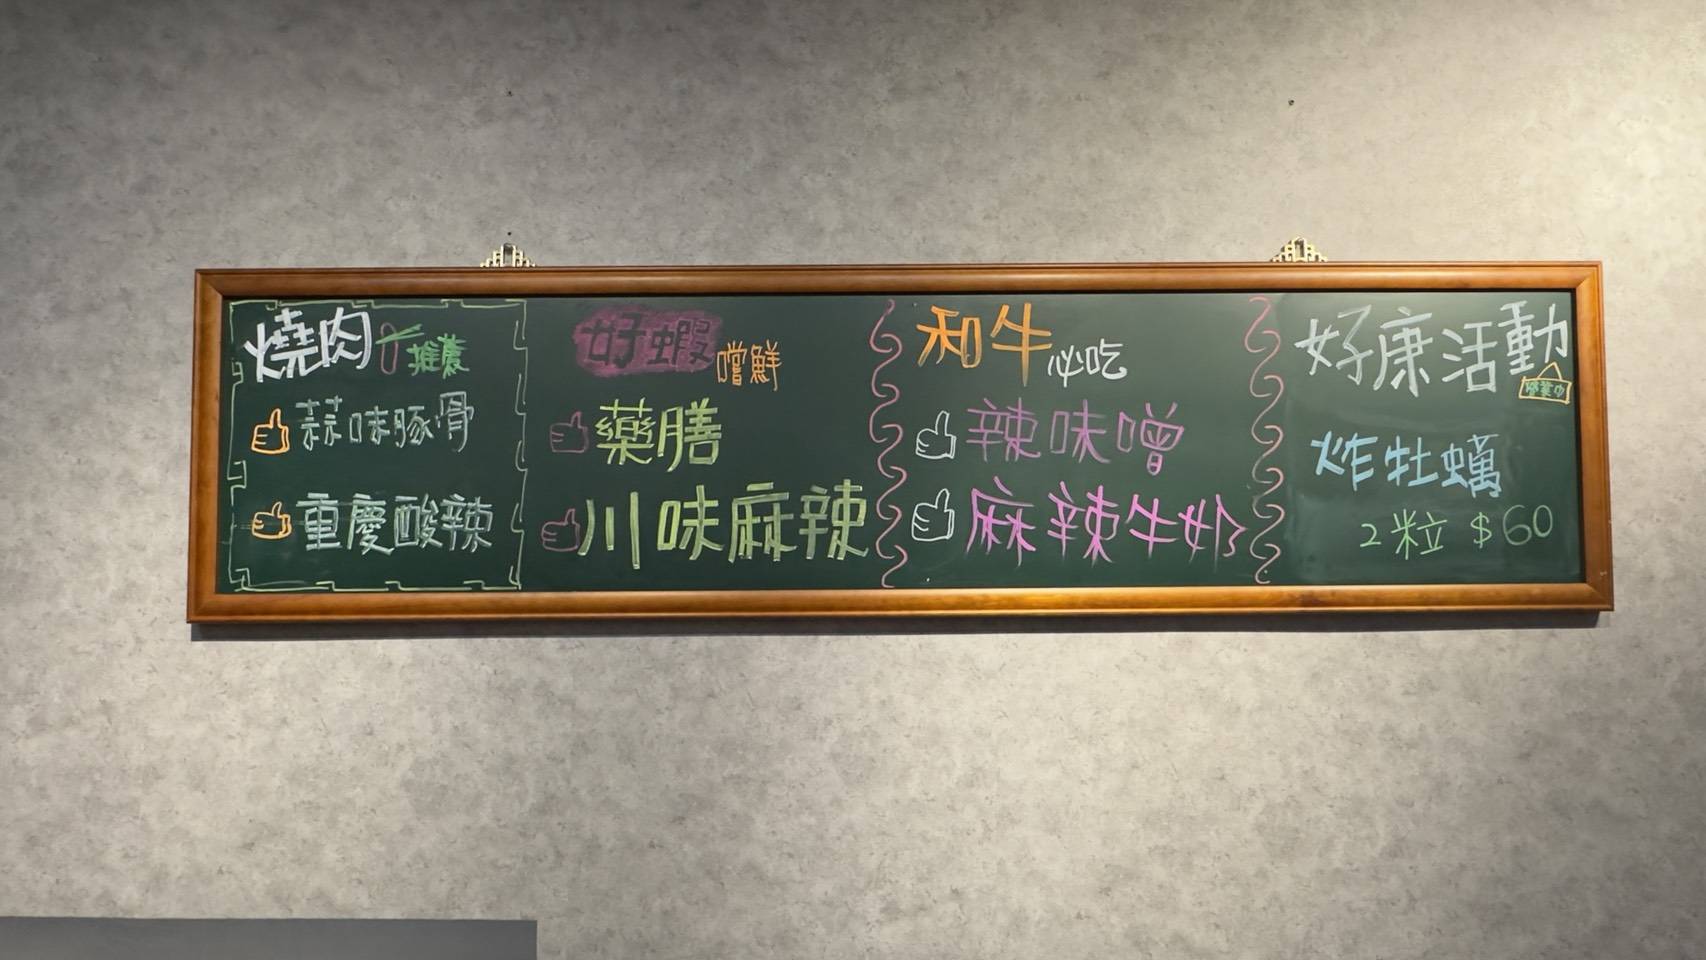 燒肉 推薦
蒜味豚骨
重慶酸辣
好蝦 嚐鮮
藥膳
川味麻辣
和牛 必吃
辣味噌
麻辣牛奶
好康活動
炸牡蠣
2粒 $60